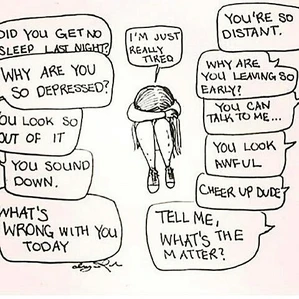 DID YOU GET NO
SLEEP LAST NIGHT?
WHY ARE YOU
SO DEPRESSED?
YOU LOOK SO
OUT OF IT
YOU SOUND
DOWN.
WHAT'S
WRONG WITH YOU
TODAY
I'M JUST
REALLY
TIRED
YOU'RE SO
DISTANT.
WHY ARE
YOU LEAVING SO
EARLY?
YOU CAN
TALK TO ME...
YOU LOOK
AWFUL
CHEER UP DUDE
TELL ME,
WHAT'S THE
MATTER?